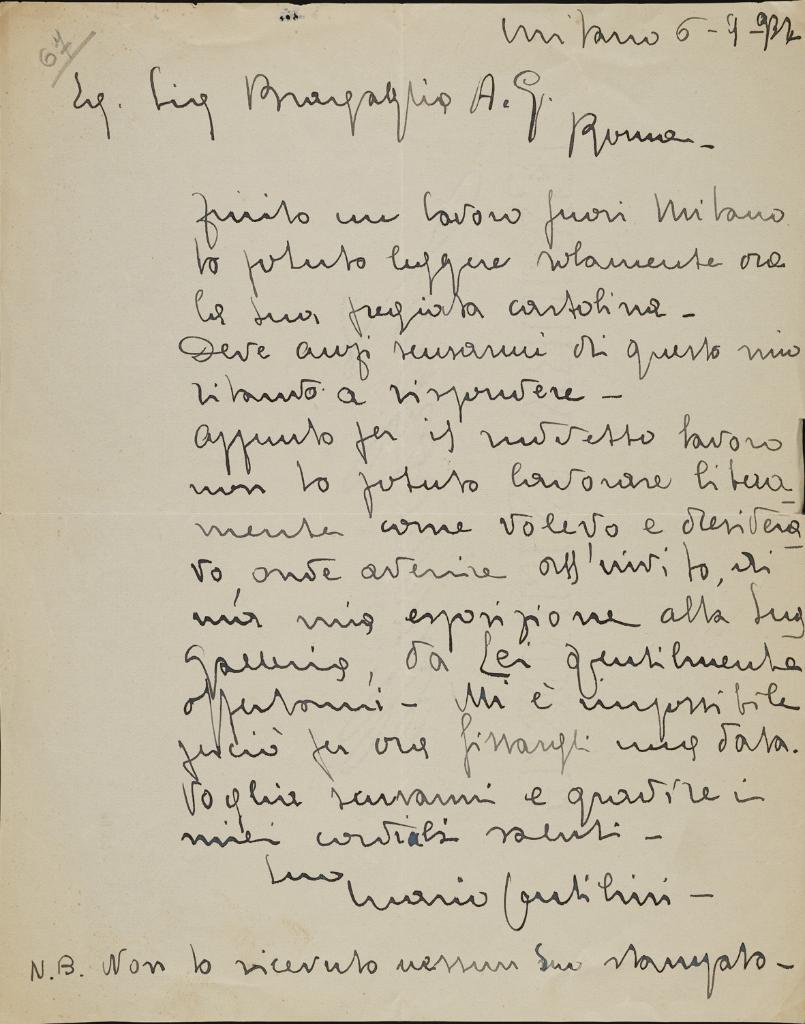 67
Milano 6-9-
Eg. Sig Bragaglia A. G.
Roma -
Finito un lavoro fuori Milano
ho potuto leggere solamente ora
la sua pregiata cartolina -
Deve anzi scusarmi di questo mio
ritardo a rispondere -
Appunto per il suddetto lavoro
non ho potuto lavorare libera
mente come volevo e desidera
vo, onde aderire all'invito, di
una mia esposizione alla Sua
Galleria, da Lei gentilmente
offertomi - Mi è impossibile
perciò per ora fissargli una data.
Voglia scusarmi e gradire i
miei cordiali saluti -
Suo
Mario
N.B. Non ho ricevuto nessun Suo stampato -